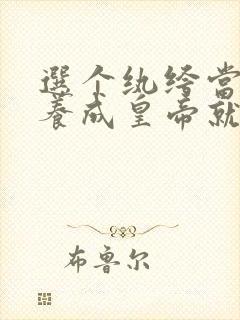 選个纨绔當
養成皇帝就
布鲁尔